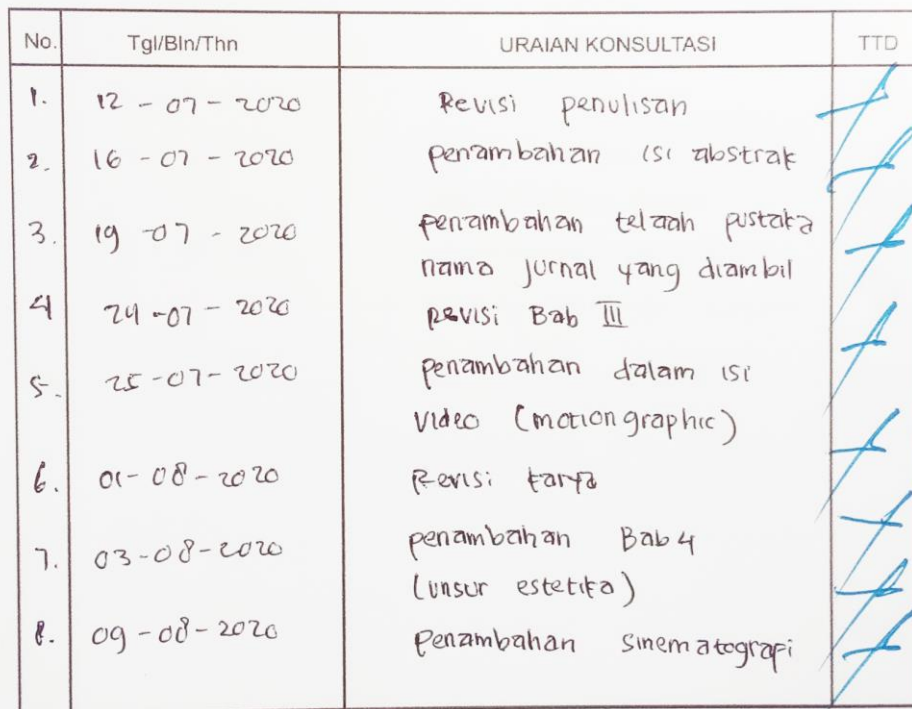 No. Tgl/Bln/Thn URAIAN KONSULTASI TTD
1. 12 - 07 - 2020 Revisi penulisan
2. 16 - 07 - 2020 penambahan isi abstrak
3. 19 - 07 - 2020 penambahan telaah pustaka
nama jurnal yang diambil
4 24 - 07 - 2020 Revisi Bab III
5. 25 - 07 - 2020 penambahan dalam isi
video (motiongraphic)
6. 01 - 08 - 2020 Revisi karya
7. 03 - 08 - 2020 penambahan Bab 4
(unsur estetika)
8. 09 - 08 - 2020 penambahan sinematografi